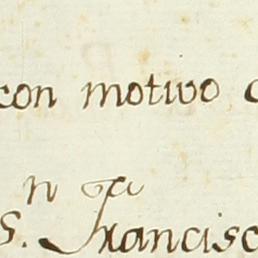 con motivo
n ga
S. Francisc